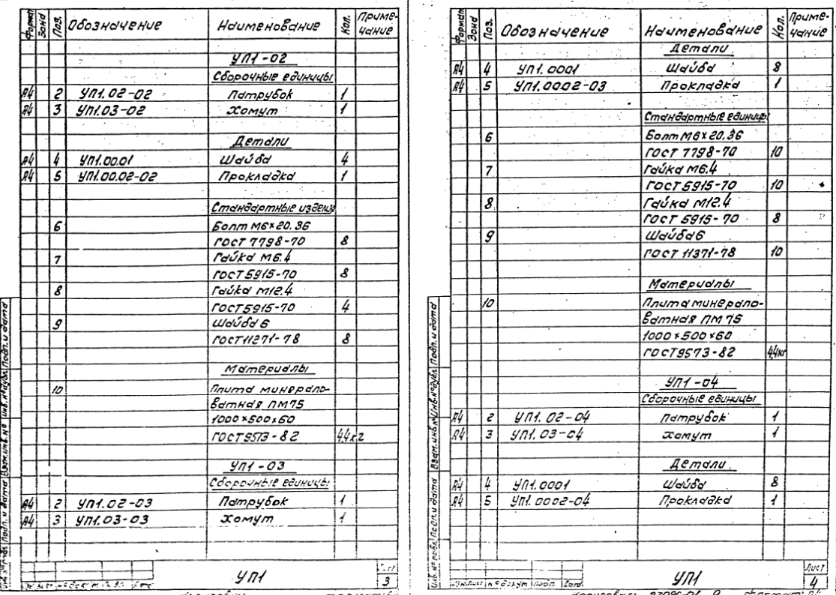 Формат Зона Поз. Обозначение Наименование Кол. Примечание
УП1-02
Сборочные единицы
А4 2 УП1.02-02 Патрубок 1
А4 3 УП1.03-02 Хомут 1
Детали
А4 4 УП1.00.01 Шайба 4
А4 5 УП1.00.02-02 Прокладка 1
Стандартные издели
6 Болт М6×20.36
ГОСТ 7798-70 8
7 Гайка М6.4
ГОСТ 5915-70 8
8 Гайка М12.4
ГОСТ 5915-70 4
9 Шайба 6
ГОСТ 11271-78 8
Материалы
10 Плита минерало-
ватная ПМ75
1000×500×60
ГОСТ 9573-82 4,4кг
УП1-03
Сборочные единицы
А4 2 УП1.02-03 Патрубок 1
А4 3 УП1.03-03 Хомут 1
УП1
Лист
3
Формат Зона Поз. Обозначение Наименование Кол. Примечание
Детали
А4 4 УП1.0001 Шайба 8
А4 5 УП1.0002-03 Прокладка 1
Стандартные единицы
6 Болт М6×20.36
ГОСТ 7798-70 10
7 Гайка М6.4
ГОСТ 5915-70 10
8 Гайка М12.4
ГОСТ 5915-70 8
9 Шайба 6
ГОСТ 11371-78 10
Материалы
10 Плита минерало-
ватная ПМ 75
1000×500×60
ГОСТ 9573-82 4,4кг
УП1-04
Сборочные единицы
А4 2 УП1.02-04 Патрубок 1
А4 3 УП1.03-04 Хомут 1
Детали
А4 4 УП1.0001 Шайба 8
А4 5 УП1.0002-04 Прокладка 1
УП1
Лист
4